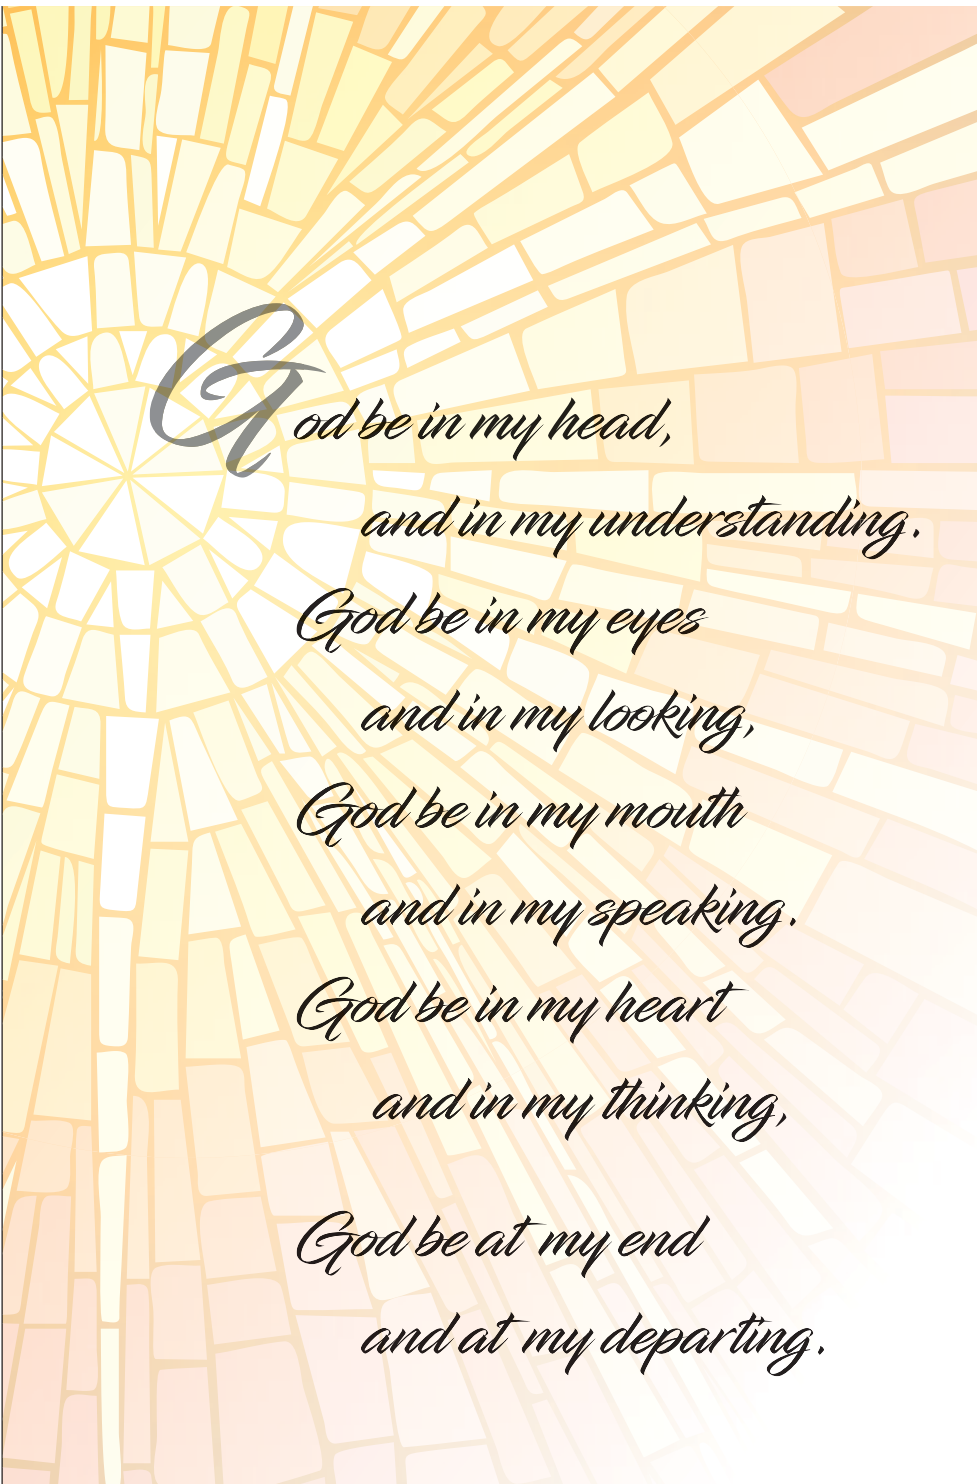 God be in my head,
and in my understanding.
God be in my eyes
and in my looking,
God be in my mouth
and in my speaking.
God be in my heart
and in my thinking,
God be at my end
and at my departing.